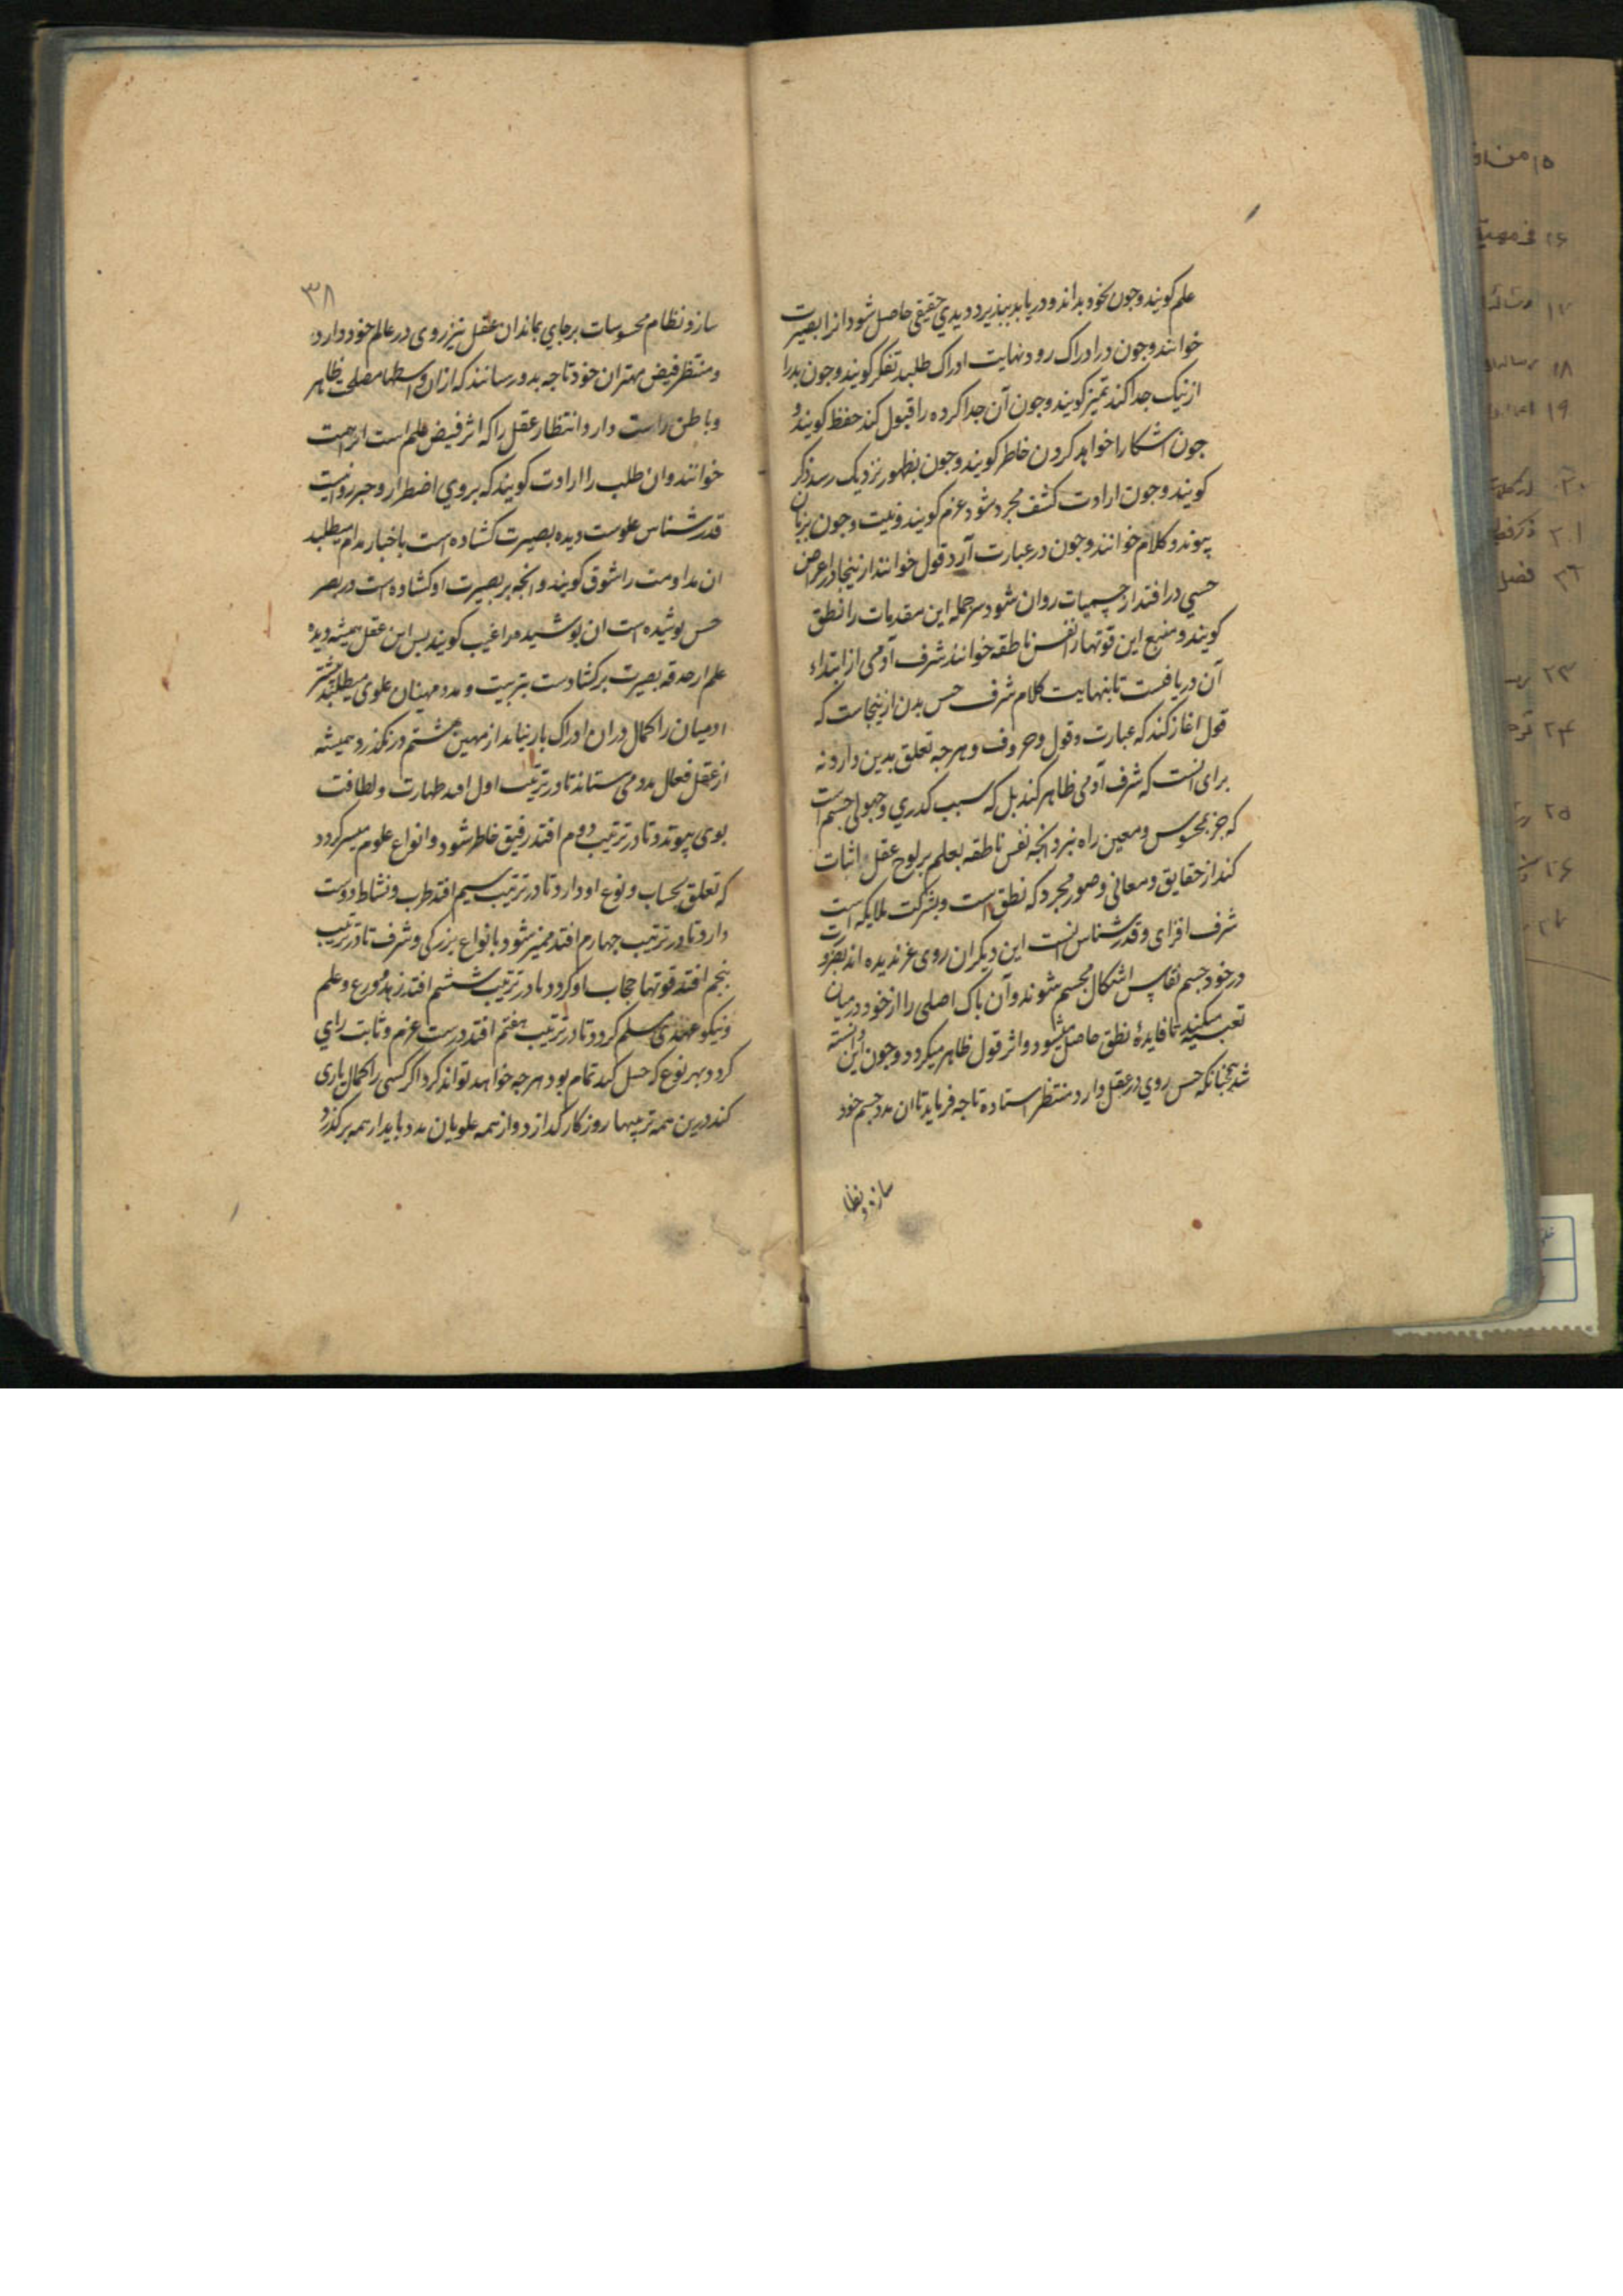 علم کویند و جون بخود بداند و دریابد ببذیرد و دیدی حقیقی حاصل شود انرا بصیرت
خوانند و جون در ادراک رود نهایت ادراک طلبد تفکر کویند و جون بد را
از نیک جدا کند تمیز کویند و جون آن جدا کرده را قبول کند حفظ کویند و
جون اشکارا خواهد کردن خاطر کویند و جون بظهور نزدیک رسد ذکر
کویند و جون ارادت کشف مجرد شود عزم کویند و نیت و جون بزبان
پیوندد کلام خوانند و جون در عبارت آرد قول خوانند از ینجا در اعراض
حسی در افتد از جسمیات روان شود سر جمله این مقدمات را نطق
کویند و منبع این قوتها را نفس ناطقه خوانند شرف آدمی از ابتداء
آن دریافتست تا بنهایت کلام شرف حس بدن از ینجاست که
قول اغاز کند که عبارت و قول و حروف و هر جه تعلق بدین دارد نه
برای انست که شرف آدمی ظاهر کند بل که سبب کدری و جهولی جسم است
که جز بمحسوس و معین راه نبرد و انجه نفس ناطقه بعلم بر لوح عقل اثبات
کند از حقایق و معانی و صور مجرد که نطق است و بشرکت ملایکه است
شرف افزای و قدر شناس انست این دیکران روی غر ندیده اند بضرورت
در خود جسم نفایس اشکال مجسم شوند و آن باک اصلی را از خود در میان
تعبیه میکنند تا فایدهٔ نطق حاصل میشود و اثر قول ظاهر میکردد و جون این دانسته
شد همجنانکه حس روی در عقل دارد منتظر استاده تا جه فرماید تا ان مدد جسم خود
سازد و نظا
۳۸
سازد و نظام محسوسات برجای بماند ان عقل نیز روی در عالم خود دارد
و منتظر فیض مهتران خود تا جه بدو رسانند که از ان واسطها مصلحت ظاهر
و باطن راست دارد و انتظار عقل را که اثر فیض علم است همت
خوانند و ان طلب را ارادت کویند که بر وی اضطرار و جبر روا نیست
قدر شناس علوست دیده بصیرت کشاده است باخبار مدام میطلبد
ان مداومت را شوق کویند و انجه بر بصیرت او کشاده است در بصر
حس بوشیده است ان بوشیده را غیب کویند بس این عقل همیشه دیده
علم از حدقه بصیرت بر کشادست بتربیت و مدد مهینان علوی میطلبد بیشتر
ادمیان را کمال در ان ادراک بار نیاید از مهین هشتم در نکذرد و همیشه
از عقل فعال مدد می ستاند تا در ترتیب اول افتد طهارت و لطافت
بوی پیوندد و تا در ترتیب دوم افتد رفیق خاطر شود و انواع علوم میسر کردد
که تعلق بحساب و نوع او دارد و تا در ترتیب سیم افتد طرب و نشاط دوست
دارد و تا در ترتیب جهارم افتد ممیز شود بانواع بزرکی و شرف تا در ترتیب
بنجم افتد قوتها حجاب او کردد و تا در ترتیب ششم افتد زهد و ورع و علم
و نیکو عهدی مسلم کردد و تا در ترتیب هفتم افتد درست عزم و ثابت رای
کردد و بهر نوع که حسل کند تمام بود هر جه خواهد تواند کرد اکر کسی را کمال یاری
کند درین همه ترتیبها روزکار کذارد و از همه علویان مدد یابد از همه بر کذرد